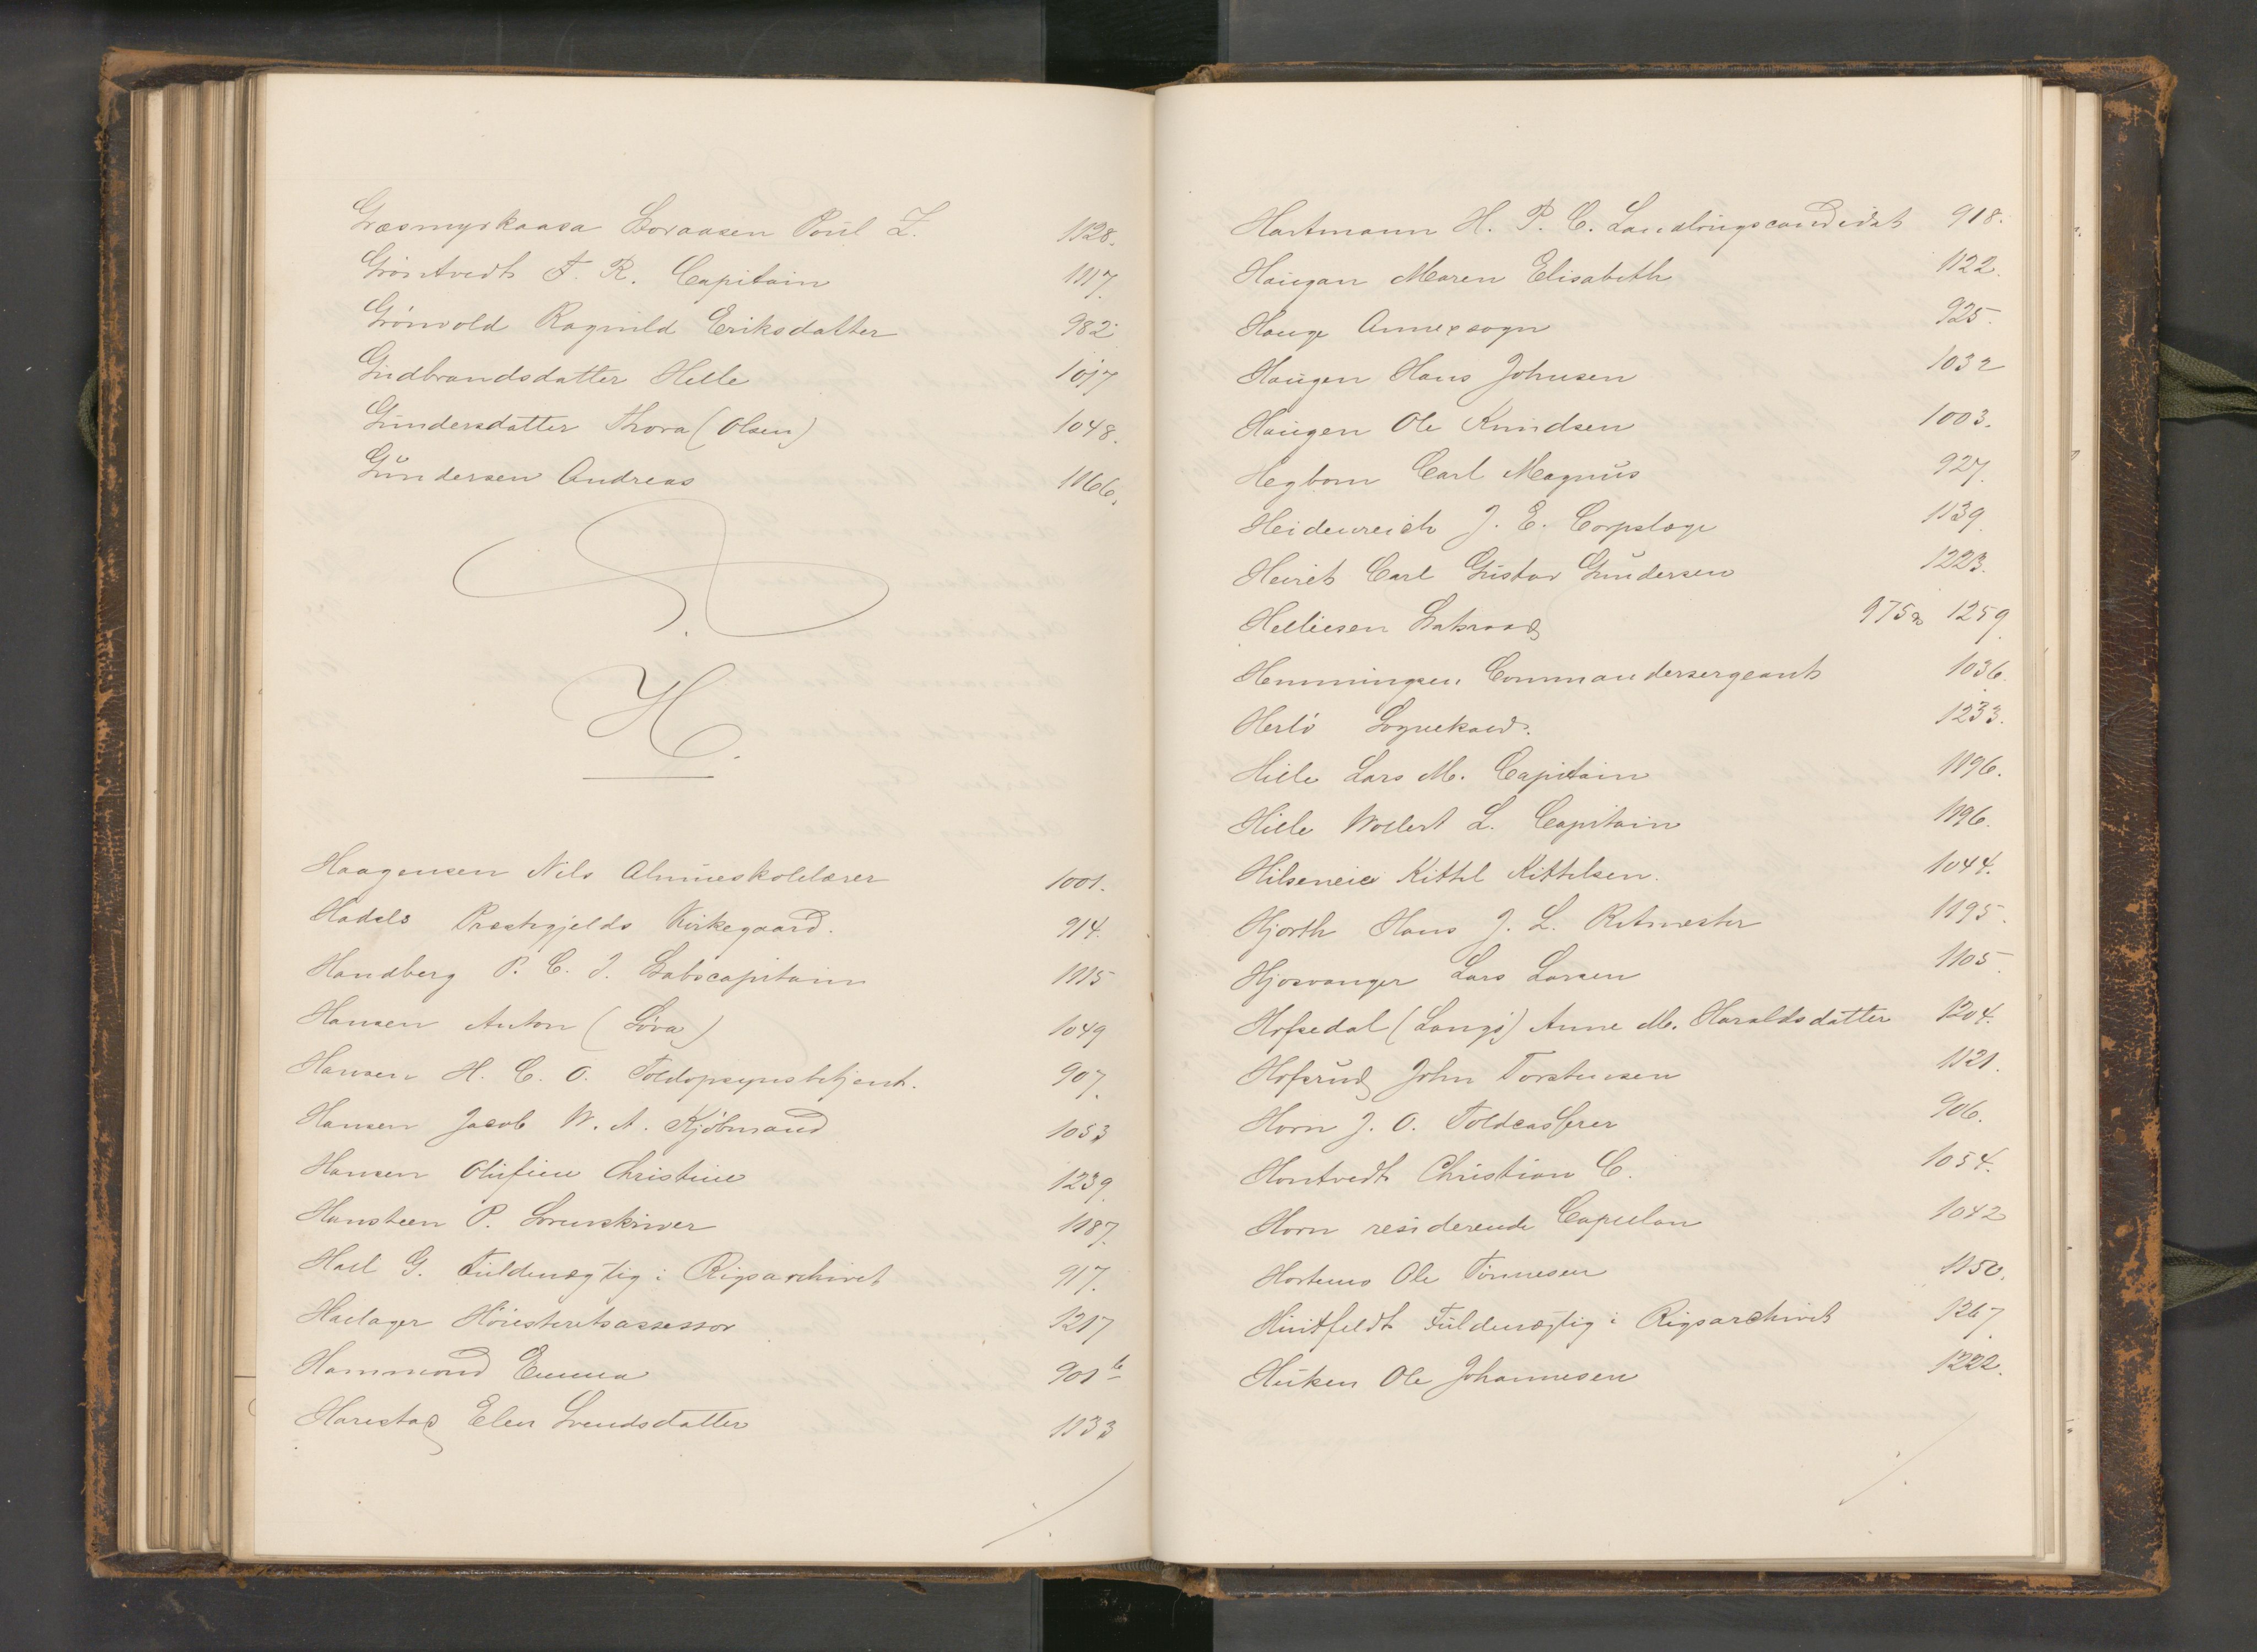 Græsmyrkaasa Povel Z. 1128.
Gröntvedt F. R. Capitain 1117.
Grönvold Ragnild Eriksdatter 982.
Gudbrandsdatter Helle 1017
Gundersdatter Thora (Olsen) 1048.
Gundersen Andreas 1166.
H.
Haagensen Nils Almueskolelærer 1001.
Hadsels Præstegjelds Kirkegaard. 914.
Handberg P. C. J. Stabscapitain 1115
Hansen Anton (Söva) 1049
Hansen H. C. O. Toldopsynsbetjent. 907.
Hansen Jacob W. A. Kjöbmand 1053
Hansen Olufine Christine 1239.
Hansteen P. Sorenskriver 1187.
Hall G. Fuldmægtig i Rigsarchivet 917.
Hallager Höiesteretsassessor 1217
Hammond Emma 901 b
Harestad Elen Svendsdatter 1133
Hartmann H. P. C. Landbrugscandidat 918.
Haugan Maren Elisabeth 1122.
Hauge Annexsogn 925.
Haugen Hans Johnsen 1032
Haugen Ole Knudsen 1003.
Hegbom Carl Magnus 927.
Heidenreich J. E. Corpslæge 1139.
Heiret Carl Gustav Gundersen 1223.
Helliesen Statsraad 975 1259
Hemmingsen Commandersergeant 1036.
Herlö Sognekald. 1233.
Hille Lars M. Capitain 1196.
Hille Wollert L. Capitain 1196.
Hilseneie Kittil Kittilsen. 1044.
Hjorth Hans J. L. Ritmester 1195.
Hjosvanger Lars Larsen 1105.
Hofsedal (Langö) Anne M. Haraldsdatter 1204.
Hofsrud John Torstensen 1121.
Horn J. O. Toldcasserer 906.
Hontvedt Christian C. 1054.
Horn residerende Capellan 1042
Hortemo Ole Tönnesen 1150.
Huitfeldt Fuldmægtig i Rigsarchivet 1267
Huken Ole Johannesen 1222.